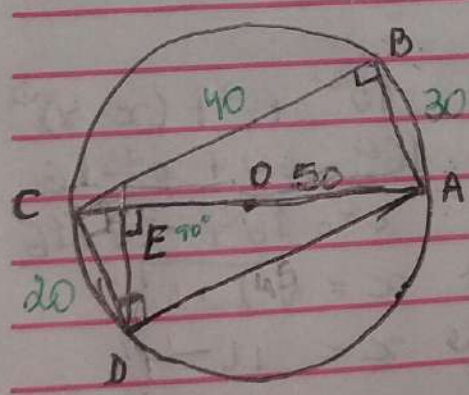 B
40
30
O 50
A
C
E 90°
20
D